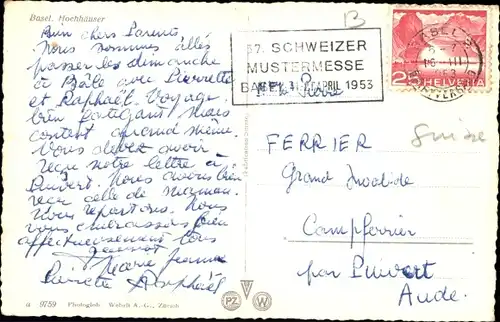 Basel. Hochhäuser
B
Bien chers Parents
Nous sommes allés
passer les dimanche
à Bâle avec Pierrette
et Raphaël. Voyage
bien fatigant mais
content quand même.
Vous devez avoir
reçu notre lettre à
Puivert. Nous avons bien
reçu celle de maman.
Nous repartons. Nous
vous embrassons bien
affectueusement tous
Marie Jeanne
Raphaël
37. SCHWEIZER
MUSTERMESSE
BASEL APRIL 1953
Pierre
BASEL 2
25 HELVETIA
FERRIER
Suisse
Grand Invalide
Campferrier
par Puivert
Aude.
a 9759 Photogleb Wehrli A.-G., Zürich
PZ W